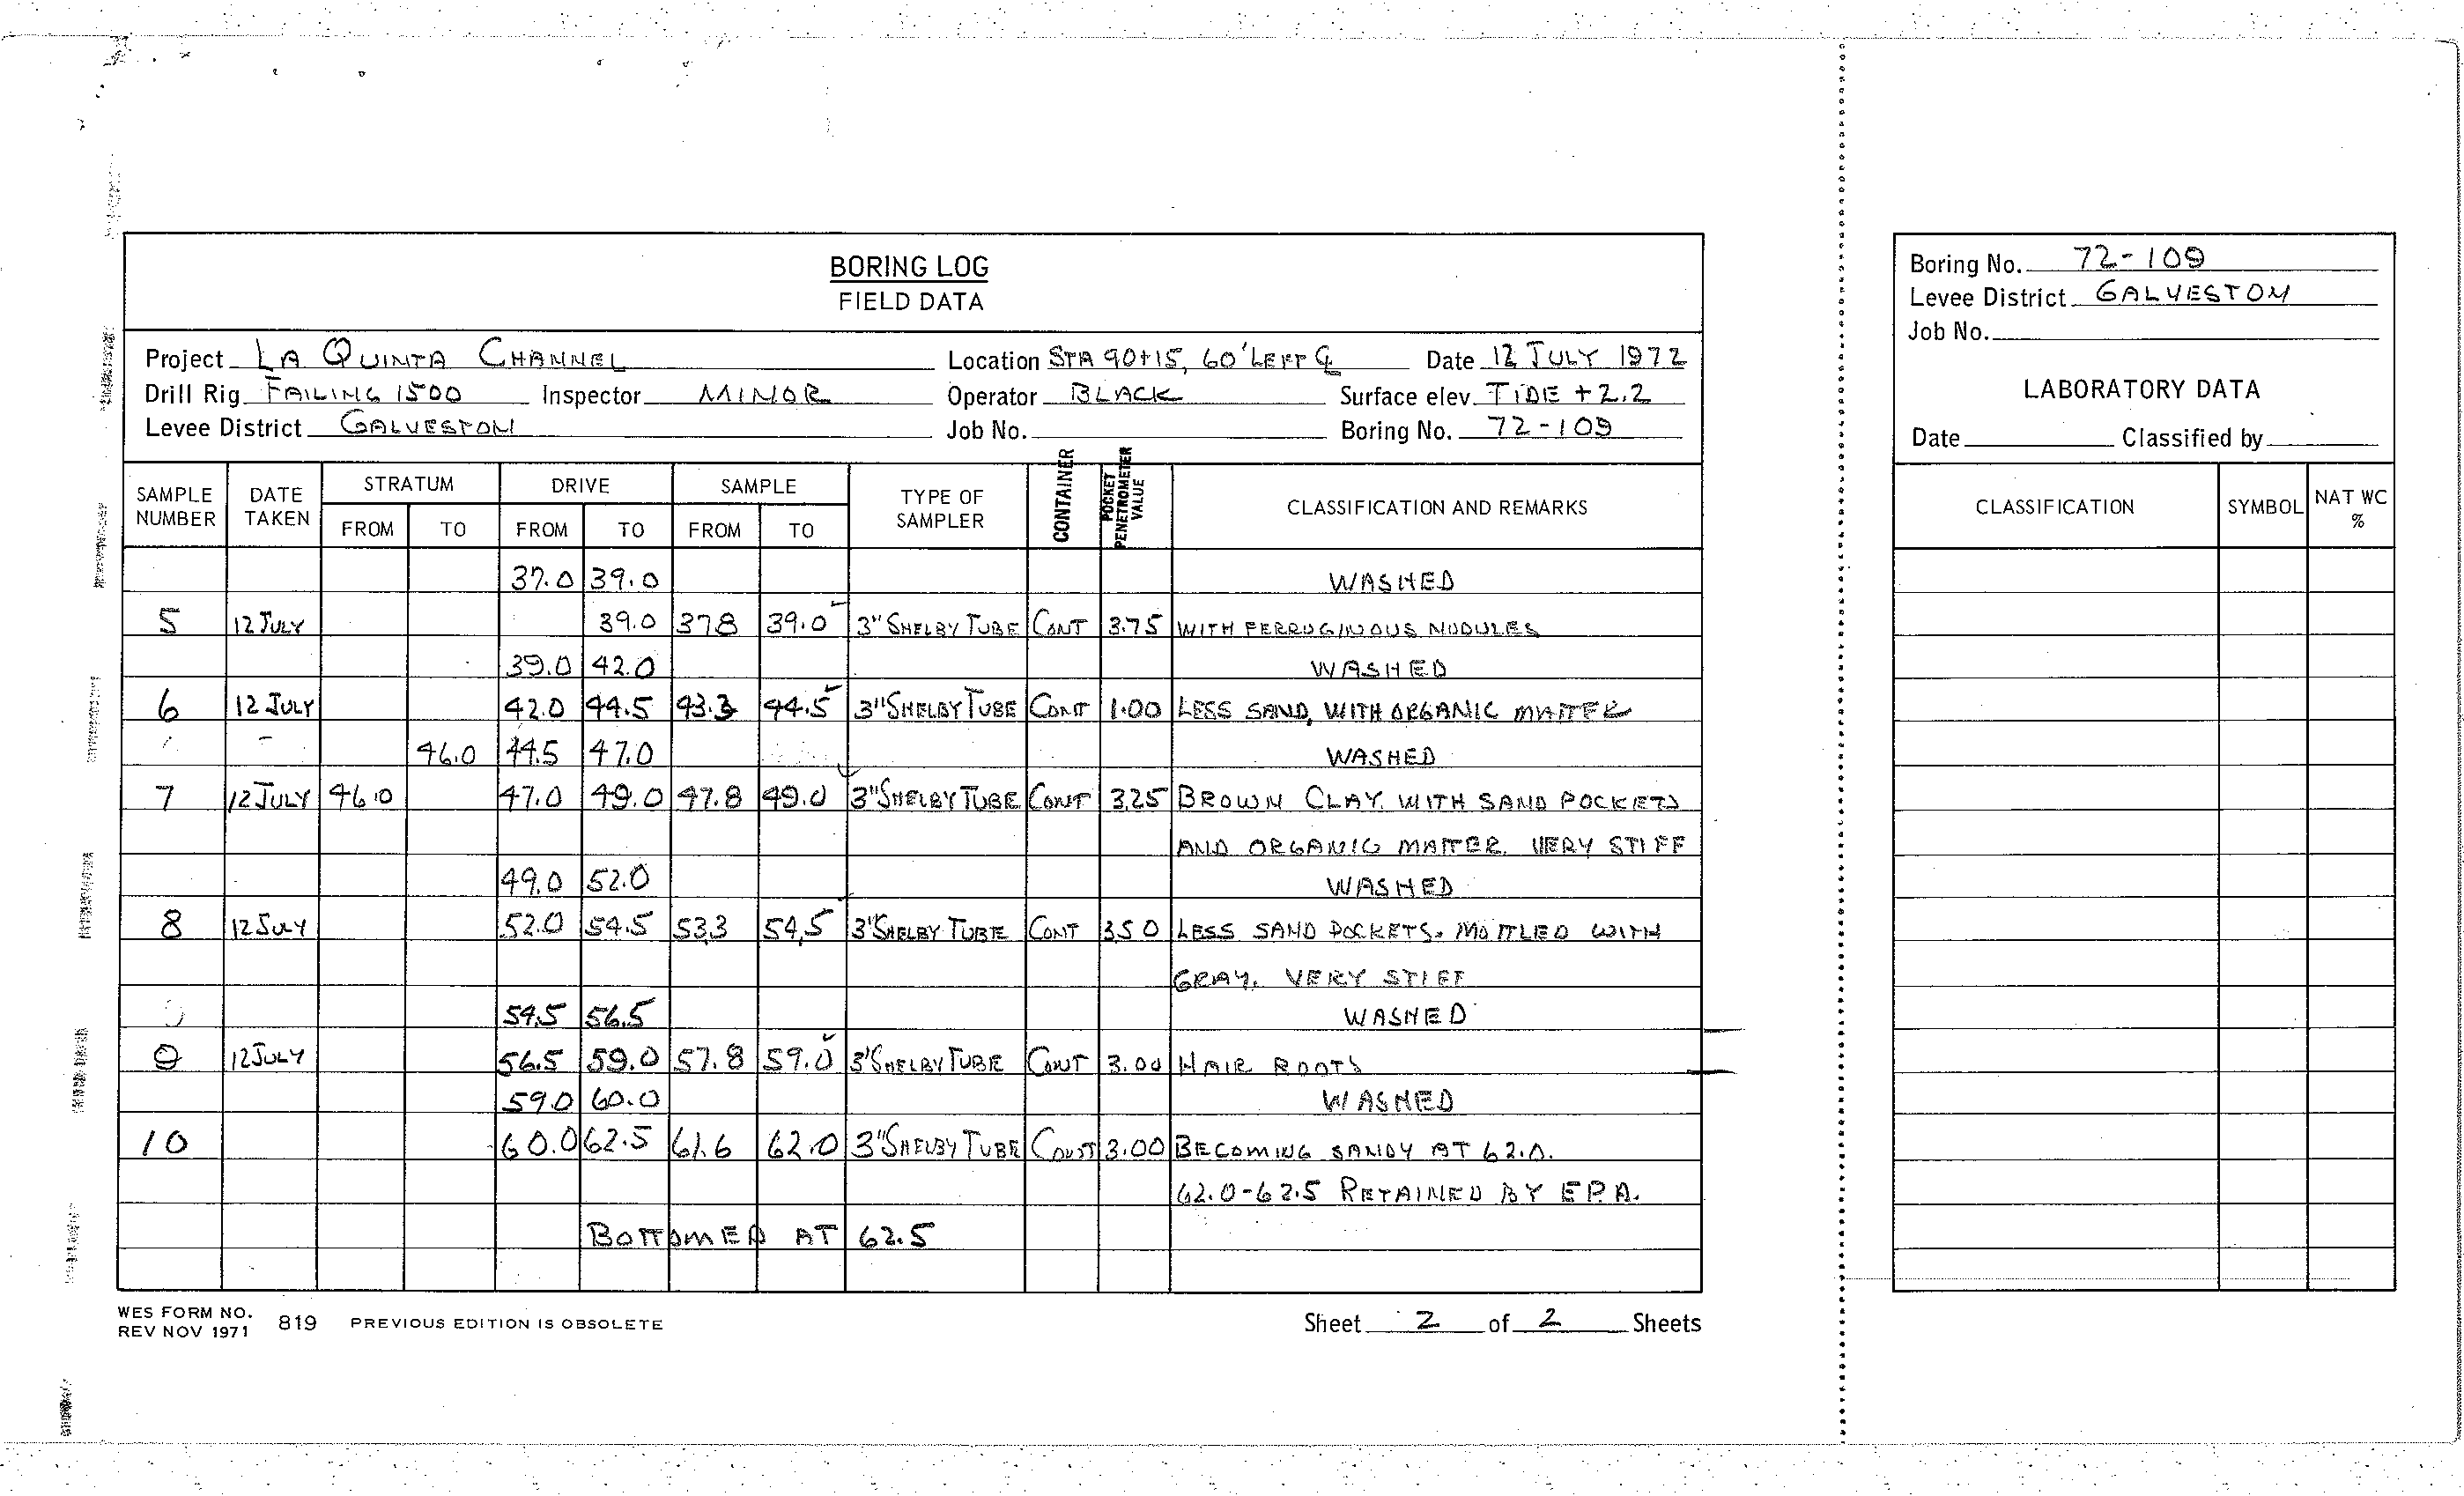 BORING LOG
FIELD DATA
Project LA QUINTA CHANNEL Location STA 90+15, 60' LEFT ℄ Date 12 JULY 1972
Drill Rig FAILING 1500 Inspector MINOR Operator BLACK Surface elev. TIDE +2.2
Levee District GALVESTON Job No. Boring No. 72-109
SAMPLE NUMBER DATE TAKEN STRATUM FROM TO DRIVE FROM TO SAMPLE FROM TO TYPE OF SAMPLER CONTAINER POCKET PENETROMETER VALUE CLASSIFICATION AND REMARKS
37.0 39.0 WASHED
5 12 JULY 39.0 37.8 39.0 3" SHELBY TUBE CONT 3.75 WITH FERRUGINOUS NODULES
39.0 42.0 WASHED
6 12 JULY 42.0 44.5 43.3 44.5 3" SHELBY TUBE CONT 1.00 LESS SAND, WITH ORGANIC MATTER
46.0 44.5 47.0 WASHED
7 12 JULY 46.0 47.0 49.0 47.8 49.0 3" SHELBY TUBE CONT 3.25 BROWN CLAY. WITH SAND POCKETS
AND ORGANIC MATTER. VERY STIFF
49.0 52.0 WASHED
8 12 JULY 52.0 54.5 53.3 54.5 3" SHELBY TUBE CONT 3.50 LESS SAND POCKETS. MOTTLED WITH
GRAY. VERY STIFF
54.5 56.5 WASHED
9 12 JULY 56.5 59.0 57.8 59.0 3" SHELBY TUBE CONT 3.00 HAIR ROOTS
59.0 60.0 WASHED
10 60.0 62.5 61.6 62.0 3" SHELBY TUBE CONT 3.00 BECOMING SANDY AT 62.0.
62.0-62.5 RETAINED BY E.P.A.
BOTTOMED AT 62.5
WES FORM NO. 819 PREVIOUS EDITION IS OBSOLETE
REV NOV 1971
Sheet 2 of 2 Sheets
Boring No. 72-109
Levee District GALVESTON
Job No.
LABORATORY DATA
Date Classified by
CLASSIFICATION SYMBOL NAT WC %